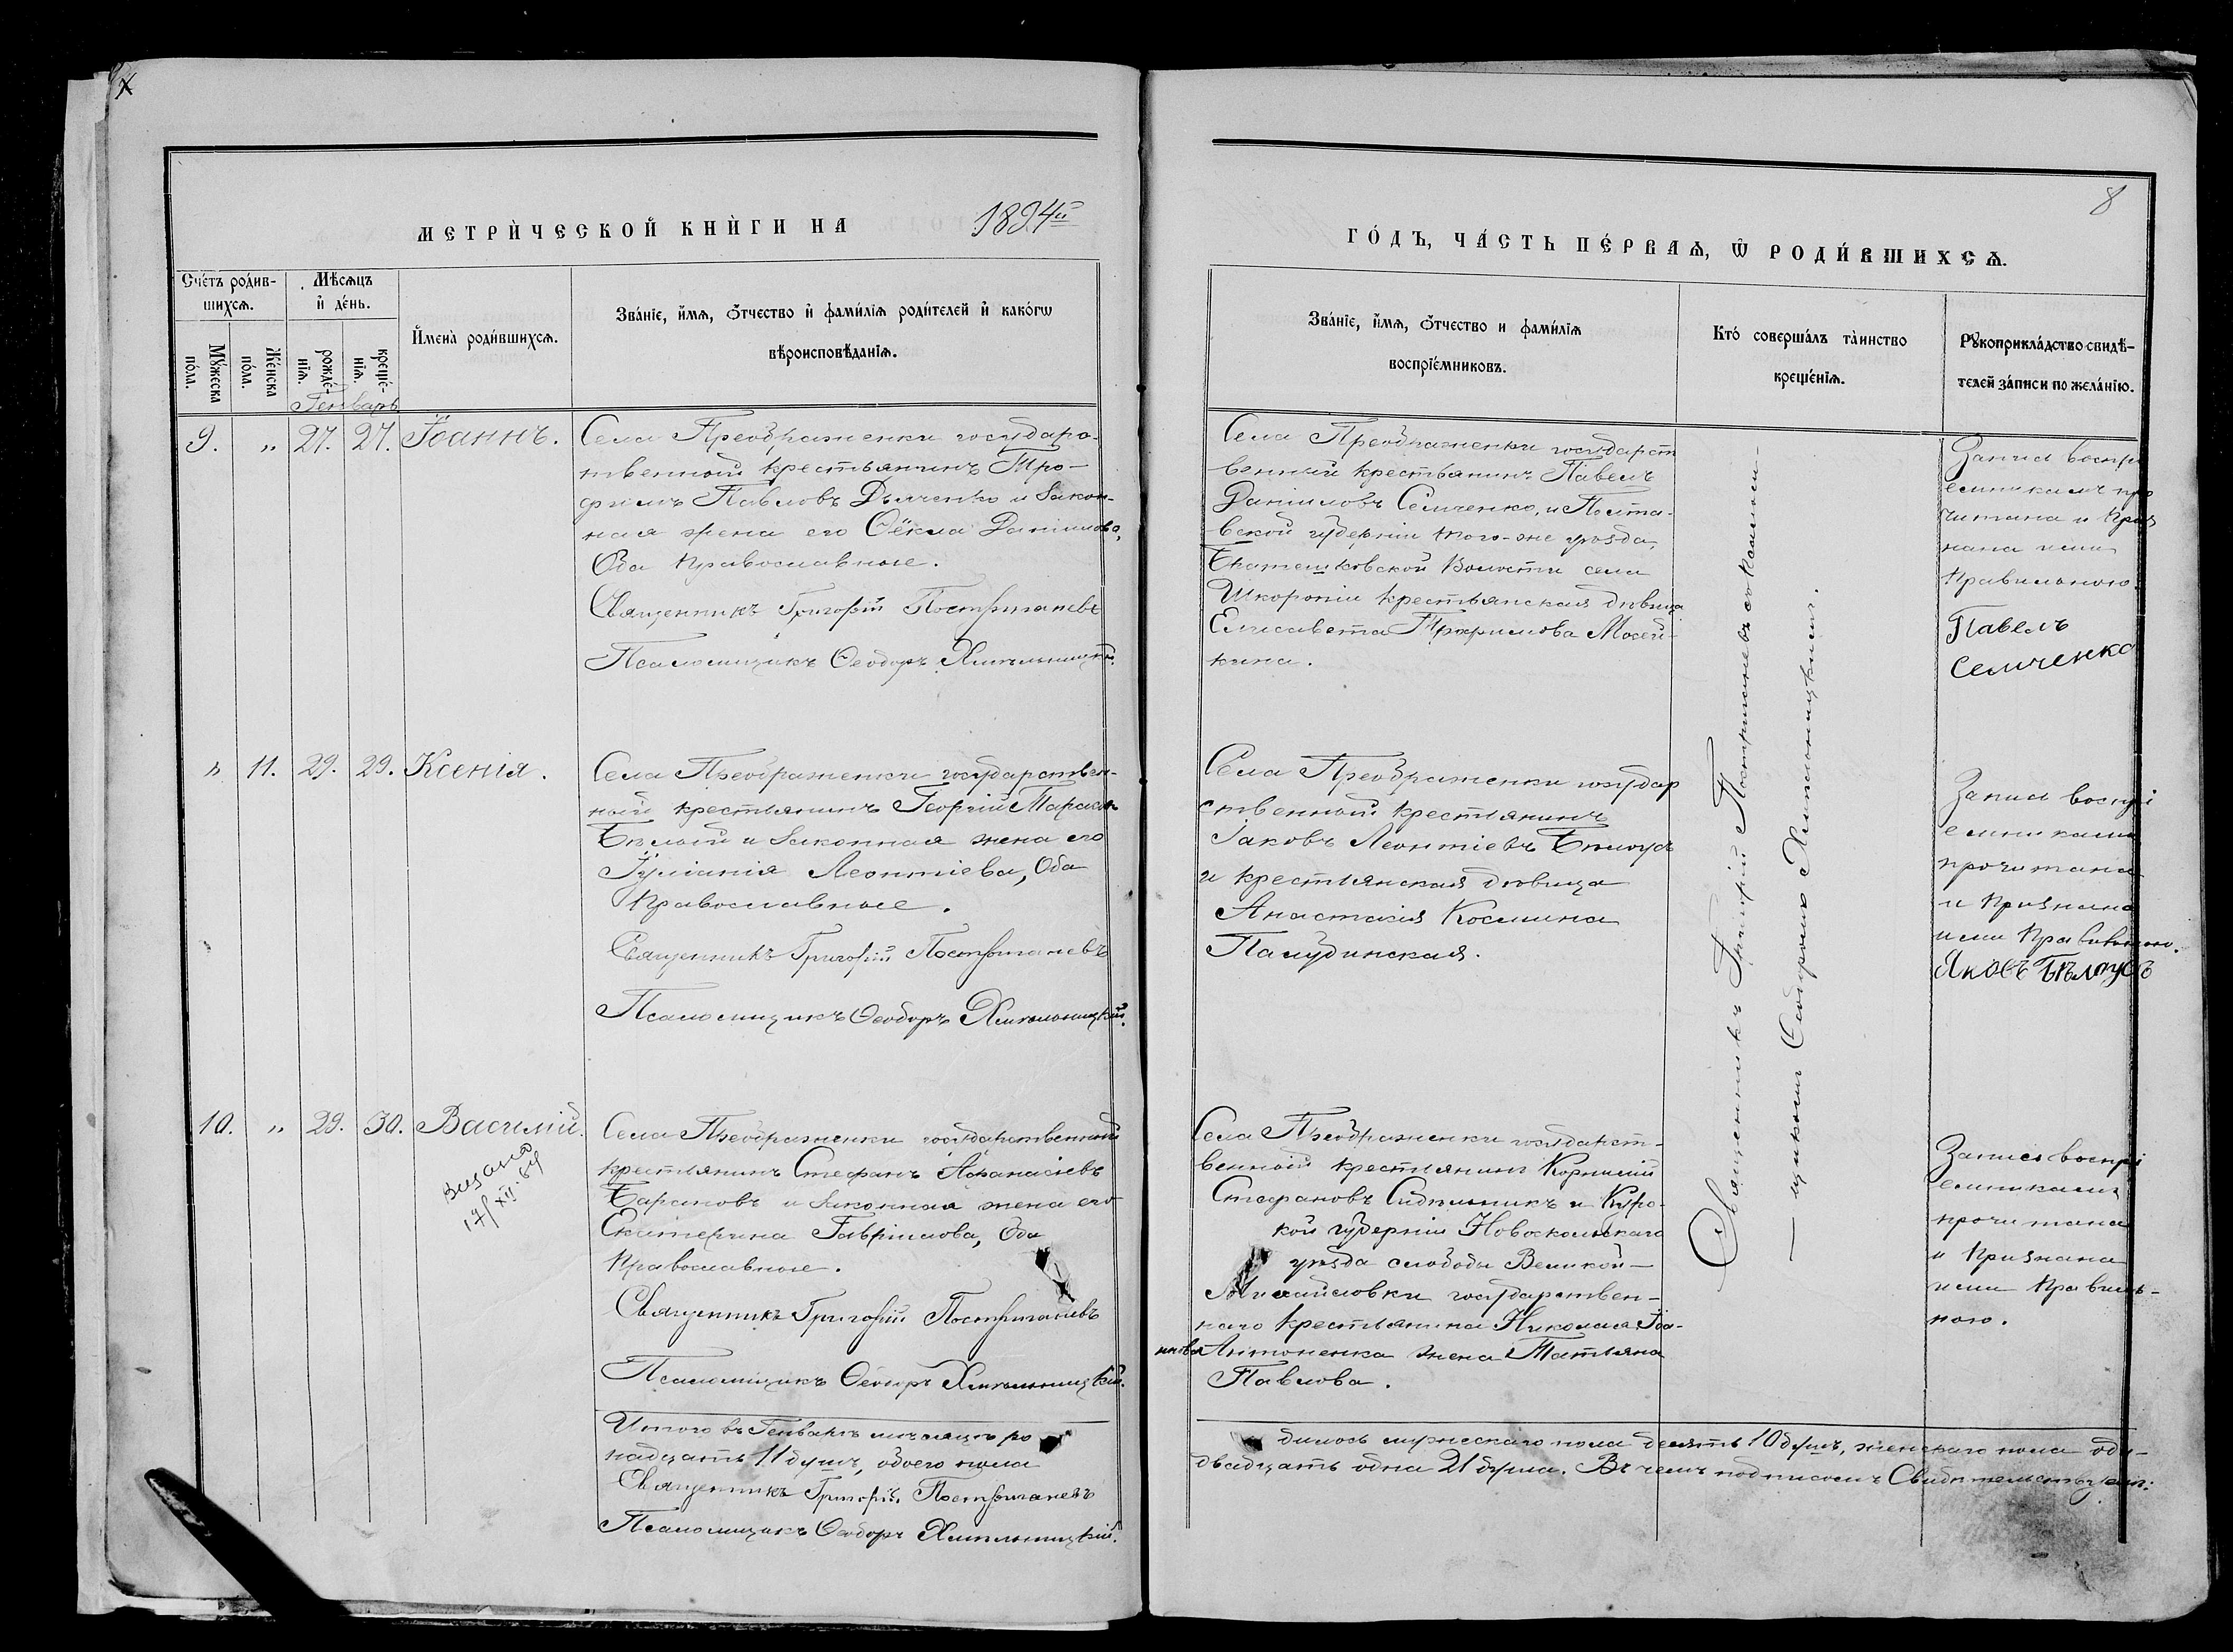 8
МЕТРИ́ЧЕСКОЙ КНИ́ГИ НА 1894й
ГО́ДЪ, ЧА́СТЬ ПЕ́РВАѦ, Ѿ РОДИ́ВШИХСѦ.
Сче́тъ роди́в-
шихсѧ.
Мѣ́сѧцъ
и҆ де́нь.
Мꙋ́жеска
по́ла.
Же́нска
по́ла.
рожде́-
нїѧ.
креще́-
нїѧ.
И҆мена̀ роди́вшихсѧ.
Зва́нїе, и҆́мѧ, ѻ҆́тчество и҆ фами́лїѧ роди́телей и҆ како́гѡ
вѣроисповѣ́данїѧ.
Зва́нїе, и҆́мѧ, ѻ҆́тчество и фами́лїѧ
воспрїе́мниковъ.
Кто́ соверша́лъ та́инство
креще́нїѧ.
Рꙋкоприкла́дство свидѣ́-
телей за́писи по жела́нїю.
Генварь
9. „ 27. 27. Іоаннъ.
Села Преображенки государс-
твенный крестьянинъ Тро-
фимъ Павловъ Дьяченко и закон-
ная жена его Ѳёкла Даніилова,
Оба православные.
Священникъ Григорій Постригачевъ
Псаломщикъ Ѳеодоръ Хмѣльницкій.
Села Преображенки государст
венный крестьянинъ Павелъ
Даніиловъ Семченко, и Полта-
вской губерніи того-же уѣзда,
волости села
крестьянская дѣвица
Елисавета Трофимова Мосей-
кина.
Запись воспрі
емникамъ про
читана и приз
нана ими
правильною.
Павелъ
Семченко
„ 11. 29. 29. Ксенія.
Села Преображенки государствен-
ный крестьянинъ Георгій Тарасовъ
Бѣлый и законная жена его
Іуліанія Леонтіева, Оба
православные.
Священникъ Григорій Постригачевъ
Псаломщикъ Ѳеодоръ Хмѣльницкій.
Села Преображенки государ
ственный крестьянинъ
Іаковъ Леонтіевъ Бѣлоусъ
и крестьянская дѣвица
Анастасія Космина
Запись воспрі
емниками
прочитана
и признана
ими правильною.
Яковъ Бѣлоусъ
10. „ 29. 30. Василій.
17/XII.64
Села Преображенки государственный
крестьянинъ Стефанъ Аѳанасіевъ
Барановъ и законная жена его
Екатерина Гавріилова, Оба
православные.
Священникъ Григорій Постригачевъ
Псаломщикъ Ѳеодоръ Хмѣльницкій.
Села Преображенки государст-
венный крестьянинъ Корнилій
Стефановъ и Курс-
кой губерніи Новооскольскаго
уѣзда слободы Великой-
Михайловки государствен-
наго крестьянина Николая Іоа-
ннова Антоненка жена Татьяна
Павлова.
Запись воспрі
емниками
прочитана
и признана
ими правиль-
ною.
Священникъ Григорій Постригачевъ съ псалом-
щикомъ Ѳеодоромъ Хмѣльницкимъ.
Итого въ Генварѣ мѣсяцѣ ро дилось мужескаго пола десять 10 душъ, женскаго пола оди-
надцать 11 душъ, обоего пола двадцать одна 21 душа. Въ чемъ подписомъ Свидѣтельствуемъ:
Священникъ Григорій Постригачевъ
Псаломщикъ Ѳеодоръ Хмѣльницкій.